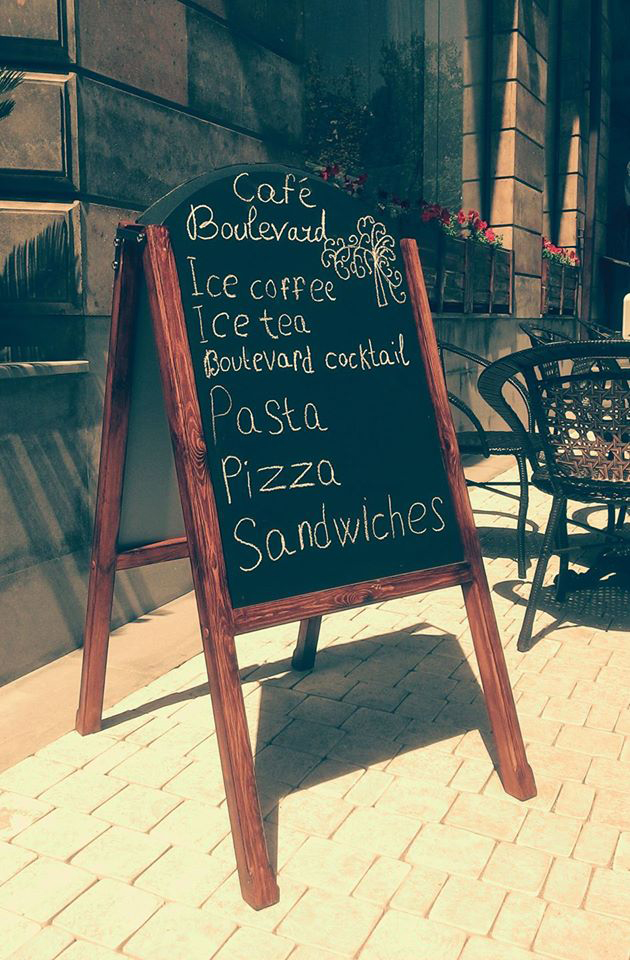 Café
Boulevard
Ice coffee
Ice tea
Boulevard cocktail
Pasta
Pizza
Sandwiches